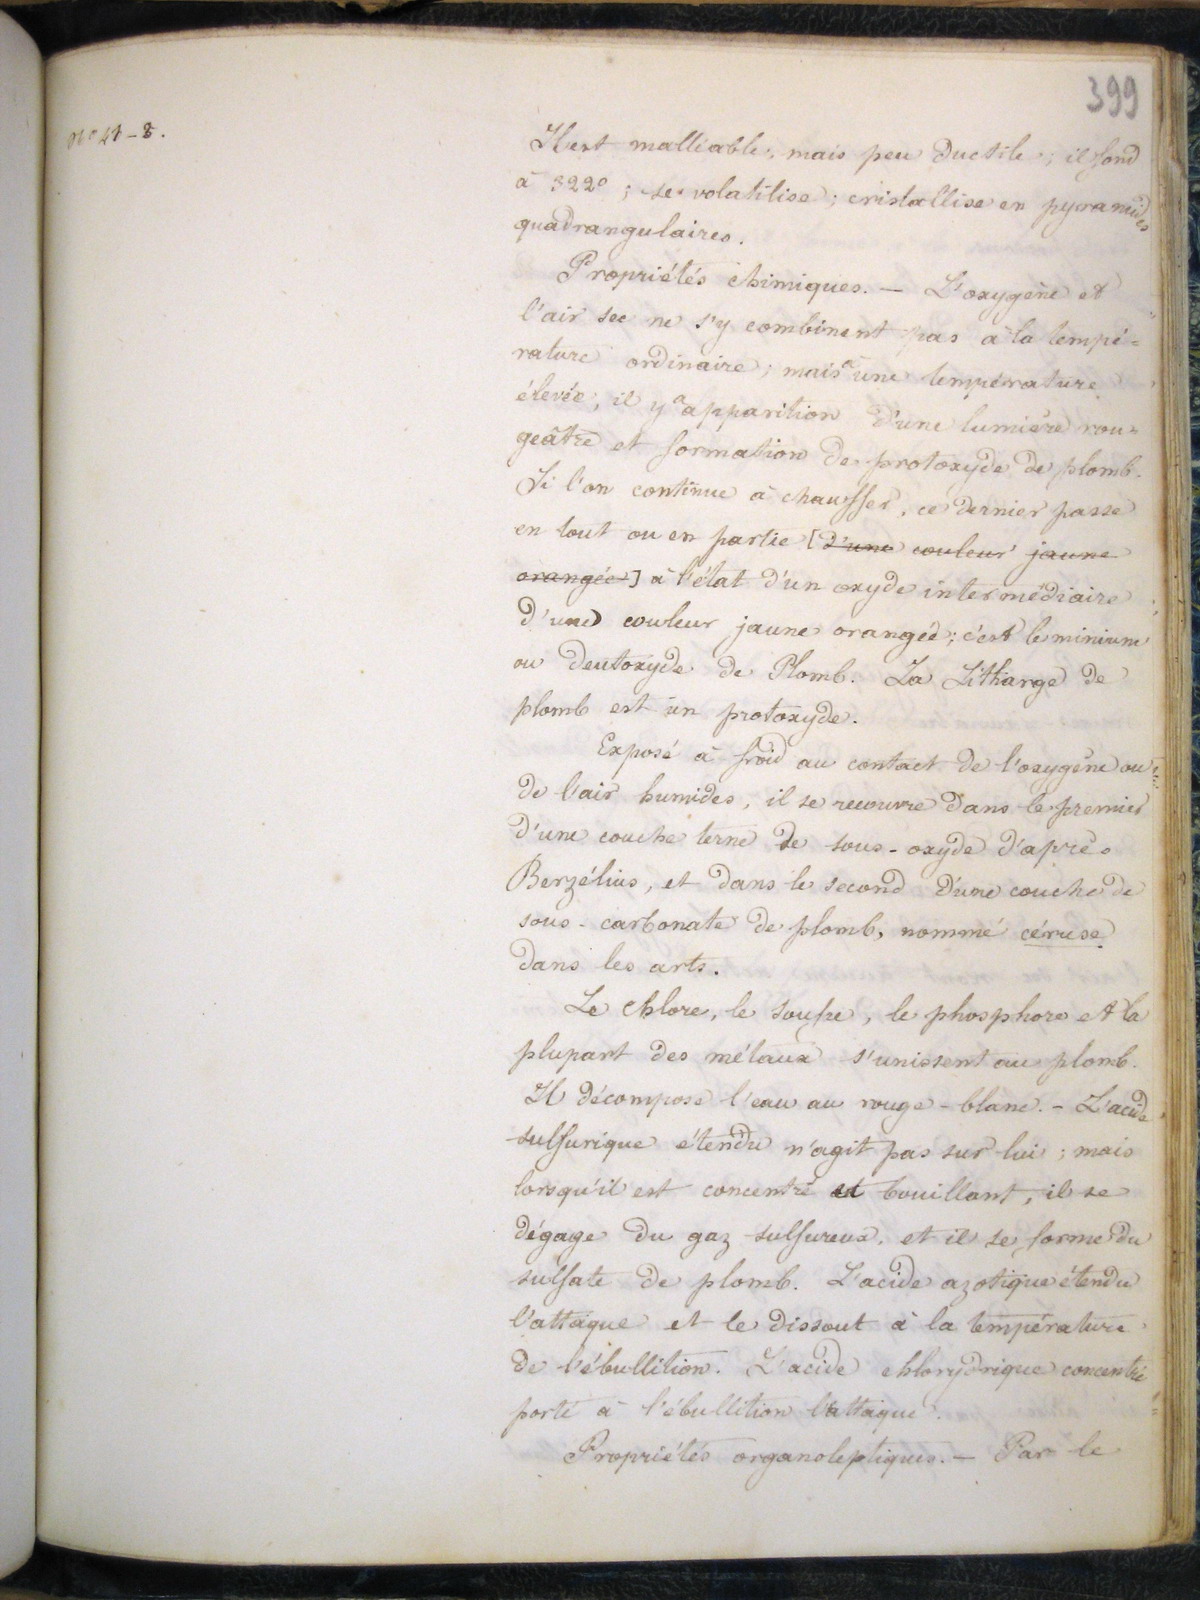 399
n° 41-8.
Il est malléable, mais peu ductile ; il fond
à 322° ; se volatilise ; cristallise en pyramides
quadrangulaires.
Propriétés chimiques. — L'oxygène et
l'air sec ne s'y combinent pas à la tempé=
rature ordinaire ; mais à une température
élevée, il y a apparition d'une lumière rou=
geâtre et formation de protoxyde de plomb.
Si l'on continue à chauffer, ce dernier passe
en tout ou en partie [d'une couleur jaune
orangée] à l'état d'un oxyde intermédiaire
d'une couleur jaune orangée ; c'est le minium
ou deutoxyde de Plomb. La Litharge de
plomb est un protoxyde.
Exposé à froid au contact de l'oxygène ou
de l'air humides, il se recouvre dans le premier
d'une couche terne de sous-oxyde d'après
Berzélius, et dans le second d'une couche de
sous-carbonate de plomb, nommé céruse
dans les arts.
Le Chlore, le soufre, le phosphore et la
plupart des métaux s'unissent au plomb.
Il décompose l'eau au rouge-blanc. - L'acide
sulfurique étendu n'agit pas sur lui ; mais
lorsqu'il est concentré et bouillant, il se
dégage du gaz sulfureux, et il se forme du
sulfate de plomb. L'acide azotique étendu
l'attaque et le dissout à la température
de l'ébullition. L'acide chlorydrique concentré
porté à l'ébullition l'attaque.
Propriétés organoleptiques. — Par le